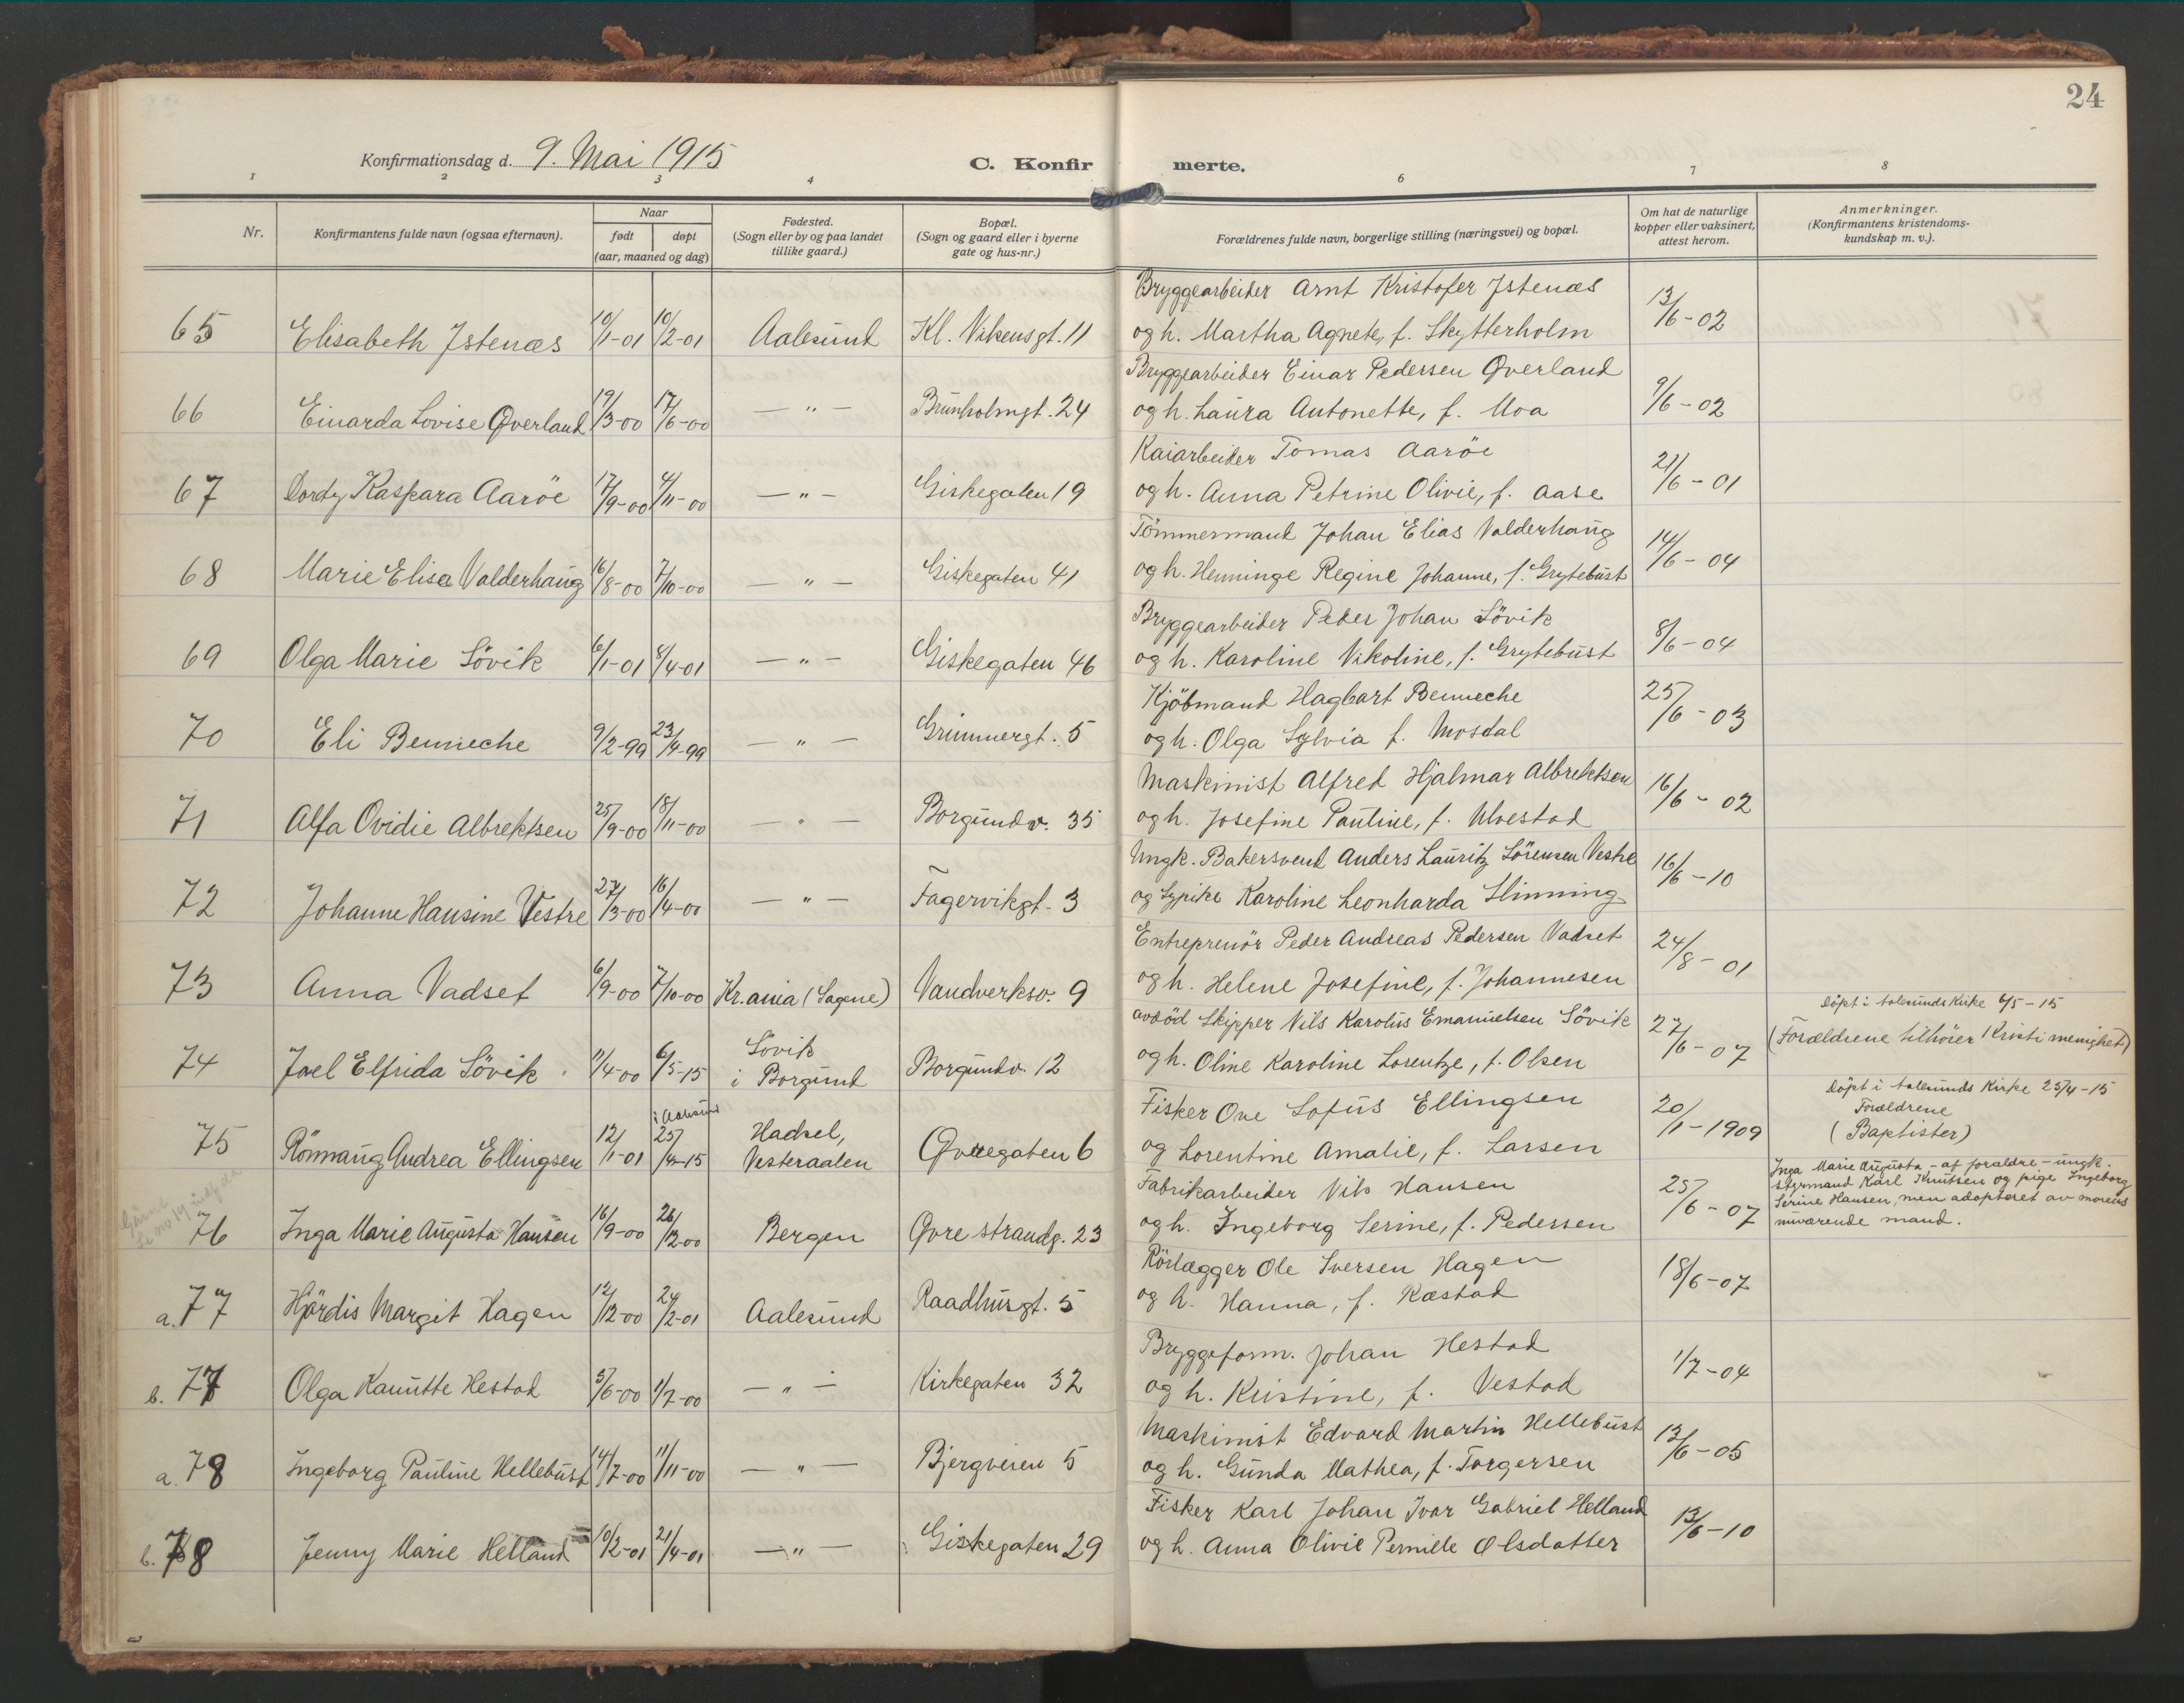 24
Konfirmationsdag d. 9. Mai 1915
C. Konfirmerte.
1 2 3 4 6 7 8
Nr.
Konfirmantens fulde navn (ogsaa efternavn).
Naar
født døpt
(aar, maaned og dag)
Fødested.
(Sogn eller by og paa landet
tillike gaard.)
Bopæl.
(Sogn og gaard eller i byerne
gate og hus-nr.)
Forældrenes fulde navn, borgerlige stilling (næringsvei) og bopæl.
Om hat de naturlige
kopper eller vaksinert,
attest herom.
Anmerkninger.
(Konfirmantens kristendoms-
kundskap m. v.).
Bryggearbeider Arnt Kristofer Istenæs
65 Elisabeth Istenæs 10/1-01 10/2-01 Aalesund Kl. Vikensgt. 11 og h. Martha Agnete, f. Skytterholm 13/6-02
Bryggearbeider Einar Pedersen Qverland
66 Einarda Lovise Qverland 19/3-00 17/6-00 — " — Brunholmgt. 24 og h. Laura Antonette, f. Moa 9/6-02
Kaiarbeider Tomas Aaröe
67 Dordy Kaspara Aaröe 17/9-00 4/11-00 — " — Giskegaten 19 og h. Anna Petrine Olivie, f. Aase 21/6-01
Tömmermand Johan Elias Valderhaug
68 Marie Elise Valderhaug 16/8-00 7/10-00 — " — Giskegaten 41 og h. Henninge Regine Johanne, f. Grytebust 14/6-04
Bryggearbeider Peder Johan Sövik
69 Olga Marie Sövik 6/1-01 8/4-01 — " — Giskegaten 46 og h. Karoline Nikoline, f. Grytebust 8/6-04
Kjöbmand Hagbart Benneche
70 Eli Benneche 9/2-99 23/4-99 — " — Grimmergt. 5 og h. Olga Sylvia f. Mosdal 25/6-03
Maskinist Alfred Hjalmar Albrektsen
71 Alfa Ovidie Albrektsen 25/9-00 18/11-00 — " — Borgundv. 35 og h. Josefine Pauline, f. Ulvestad 16/6-02
Ungk. Bakersvend Anders Lauritz Sörensen Vestre
72 Johanne Hansine Vestre 27/3-00 16/4-00 — " — Fagervikgt. 3 og Sypike Karoline Leonharda Slinning 16/6-10
Entreprenör Peder Andreas Pedersen Vadset
73 Anna Vadset 6/9-00 7/10-00 Kr.ania (Sagene) Vandverksv. 9 og h. Helene Josefine, f. Johannesen 24/8-01
avdöd Skipper Nils Karolus Emanuelsen Sövik
74 Jael Elfrida Sövik 11/4-00 6/5-15 Sövik i Borgund Borgundv. 12 og h. Oline Karoline Lorentze, f. Olsen 27/6-07
Döpt i Aalesunds Kirke 6/5-15
(Forældrene tilhører Kristi menighet)
Fisker Ove Sofus Ellingsen
75 Rönnaug Andrea Ellingsen 12/1-01 i Aalesund 25/4-15 Hadsel, Vesteraalen Qvregaten 6 og Lorentine Amalie, f. Larsen 20/1-1909
Döpt i Aalesunds Kirke 25/4-15
Forældrene
(Baptister)
Fabrikarbeider Nils Hansen
76 Inga Marie Augusta Hansen 16/9-00 26/12-00 Bergen Qvre strandg. 23 og h. Ingeborg Serine, f. Pedersen 25/6-07
Inga Marie Augusta - af foraldre - ungk.
styrmand Karl Knutsen og pige Ingeborg
Serine Hansen, men adopteret av morens
nuværende mand.
Rörlægger Ole Iversen Hagen
a. 77 Hjördis Margit Hagen 12/12-00 24/2-01 Aalesund Raadhusgt. 5 og h. Hanna, f. Kæstad 18/6-07
Bryggeform. Johan Hestad
b. 77 Olga Kanutte Hestad 5/6-00 1/7-00 — " — Kirkegaten 32 og h. Kristine, f. Vestad 1/7-04
Maskinist Edvard Martin Hellebust
a. 78 Ingeborg Pauline Hellebust 14/7-00 11/11-00 — " — Bjergveien 5 og h. Gunda Mathea, f. Torgersen 13/6-05
Fisker Karl Johan Ivar Gabriel Helland
b. 78 Jenny Marie Helland 10/2-01 21/4-01 — " — Giskegaten 29 og h. Anna Olivie Pernille Olsdatter 13/6-10